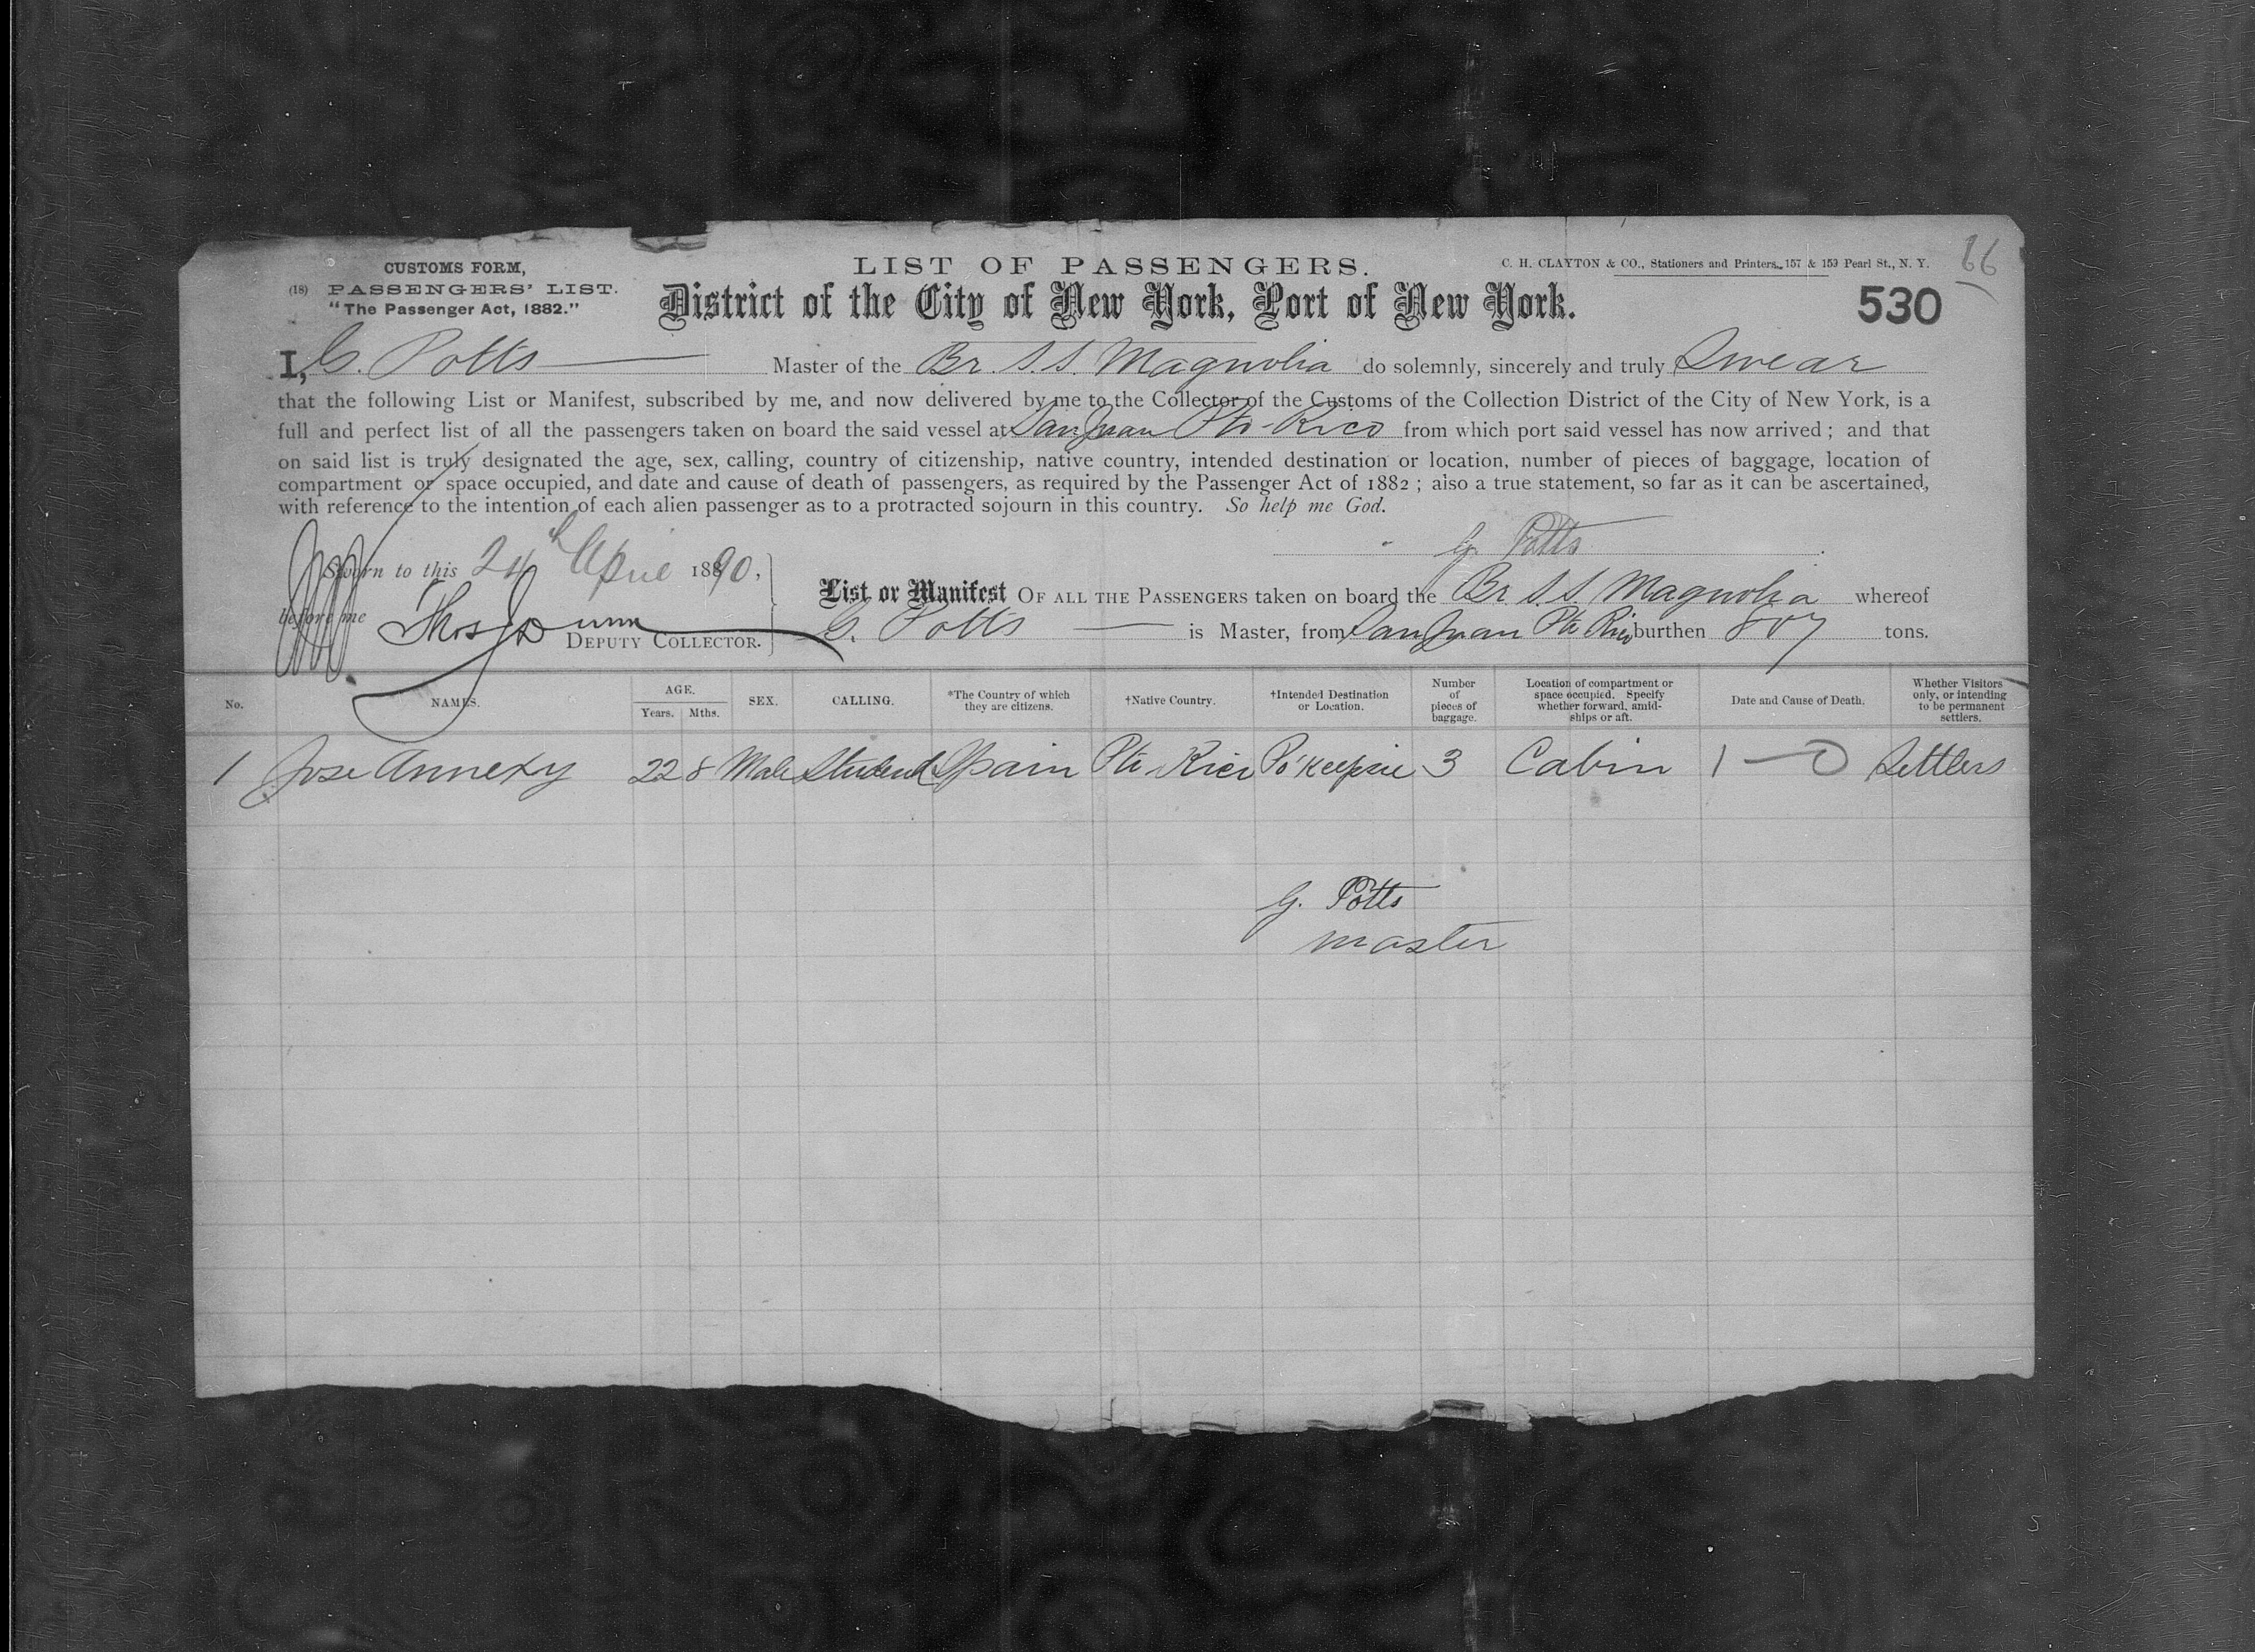 CUSTOMS FORM,
(18) PASSENGERS' LIST.
"The Passenger Act, 1882."
LIST OF PASSENGERS.
District of the City of New York, Port of New York.
C. H. CLAYTON & CO., Stationers and Printers, 157 & 159 Pearl St., N. Y.
66
530
I, G. Potts Master of the Br. S.S. Magnolia do solemnly, sincerely and truly Swear
that the following List or Manifest, subscribed by me, and now delivered by me to the Collector of the Customs of the Collection District of the City of New York, is a
full and perfect list of all the passengers taken on board the said vessel at San Juan Pto-Rico from which port said vessel has now arrived; and that
on said list is truly designated the age, sex, calling, country of citizenship, native country, intended destination or location, number of pieces of baggage, location of
compartment or space occupied, and date and cause of death of passengers, as required by the Passenger Act of 1882; also a true statement, so far as it can be ascertained,
with reference to the intention of each alien passenger as to a protracted sojourn in this country. So help me God.
G. Potts
Sworn to this 24th April 1890,
before me Thos J Dunn
DEPUTY COLLECTOR.
List or Manifest OF ALL THE PASSENGERS taken on board the Br S.S. Magnolia whereof
G. Potts is Master, from San Juan Pto Rico burthen 807 tons.
No. NAMES. AGE. Years. Mths. SEX. CALLING. *The Country of which they are citizens. †Native Country. †Intended Destination or Location. Number of pieces of baggage. Location of compartment or space occupied. Specify whether forward, amidships or aft. Date and Cause of Death. Whether Visitors only, or intending to be permanent settlers.
1 Jose Annexy 22 8 Male Student Spain Pto Rico Po'keepsie 3 Cabin 1 — 0 Settlers
G. Potts
master